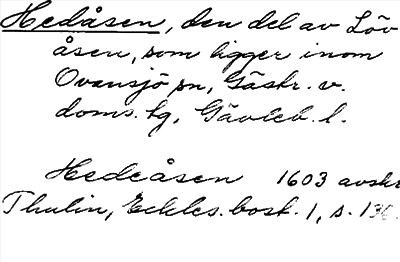 Hedåsen, den del av Löv
åsen, som ligger inom
Ovansjö sn, Gästr. v.
doms. tg, Gävleb. l.
Hedeåsen 1603 avskr
Thulin, Eckles. bosk. 1, s. 136.